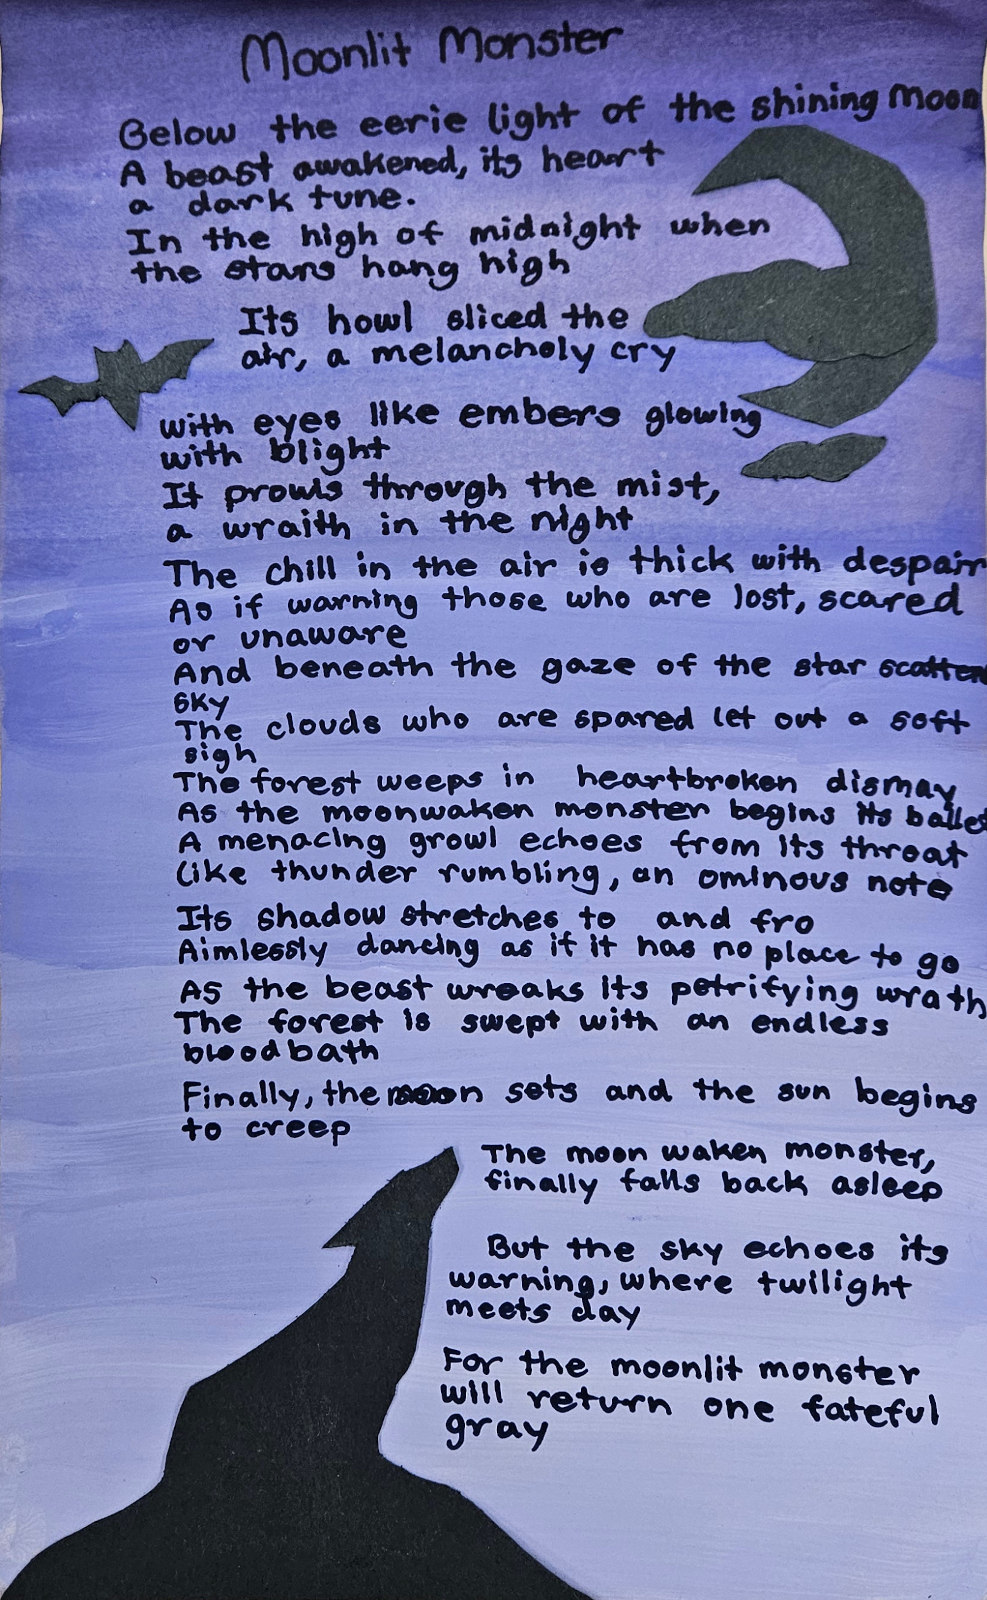 Moonlit Monster
Below the eerie light of the shining moon
A beast awakened, its heart
a dark tune.
In the high of midnight when
the stars hang high
Its howl sliced the
air, a melancholy cry
with eyes like embers glowing
with blight
It prowls through the mist,
a wraith in the night
The chill in the air is thick with despair
As if warning those who are lost, scared
or unaware
And beneath the gaze of the star scatten
sky
The clouds who are spared let out a soft
sigh
The forest weeps in heartbroken dismay
As the moonwaken monster begins its ballet
A menacing growl echoes from its throat
Like thunder rumbling, an ominous note
Its shadow stretches to and fro
Aimlessly dancing as if it has no place to go
As the beast wreaks its petrifying wrath
The forest is swept with an endless
bloodbath
Finally, the moon sets and the sun begins
to creep
The moon waken monster,
finally falls back asleep
But the sky echoes its
warning, where twilight
meets day
For the moonlit monster
will return one fateful
gray